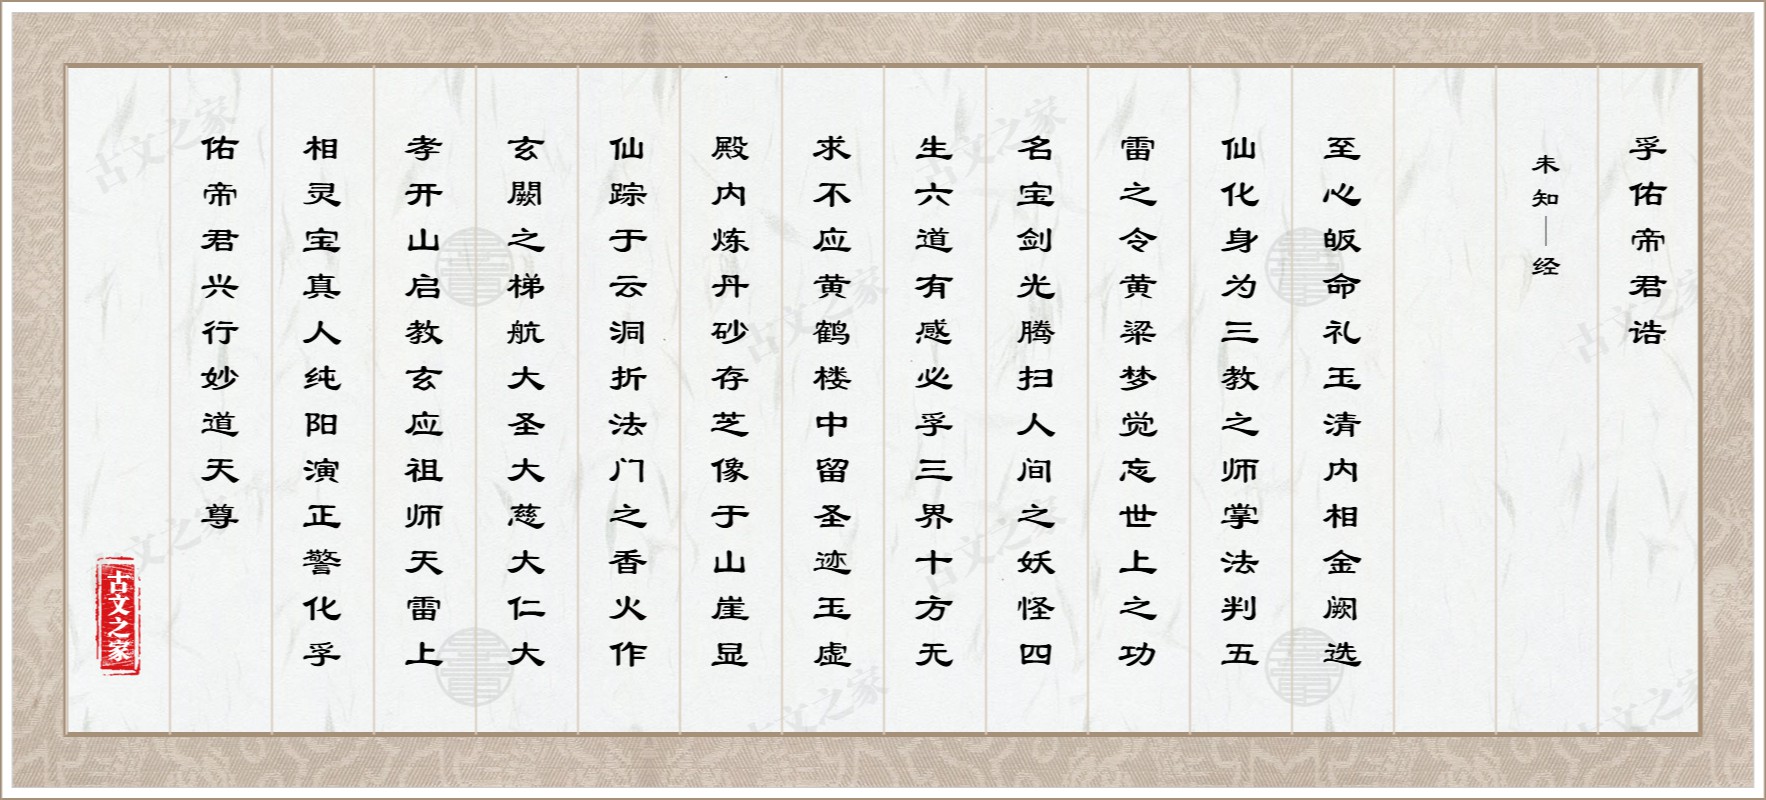 孚佑帝君诰
未知—经
至心皈命礼玉清内相金阙选
仙化身为三教之师掌法判五
雷之令黄粱梦觉忘世上之功
名宝剑光腾扫人间之妖怪四
生六道有感必孚三界十方无
求不应黄鹤楼中留圣迹玉虚
殿内炼丹砂存芝像于山崖显
仙踪于云洞折法门之香火作
玄阙之梯航大圣大慈大仁大
孝开山启教玄应祖师天雷上
相灵宝真人纯阳演正警化孚
佑帝君兴行妙道天尊
古文之家